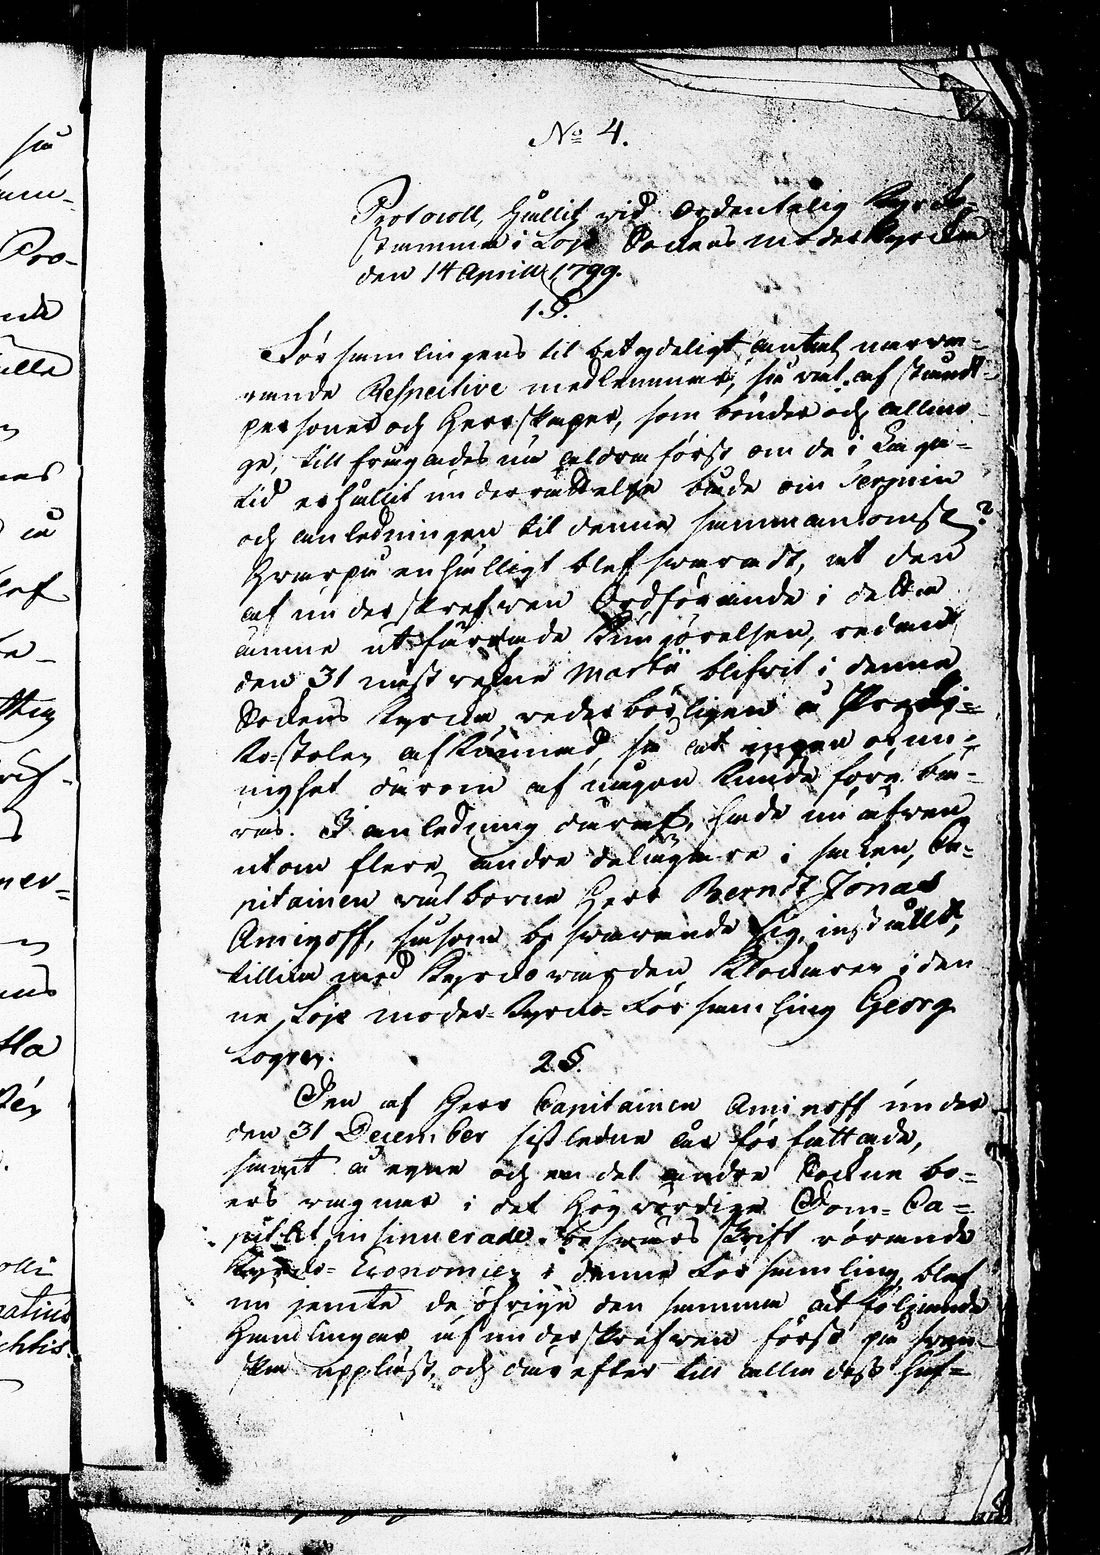 så
Pro-
No 4.
Protocoll, hållit vid Ordentelig Kyrko-
stämma i Lojo Sockens moderkyrka
den 14 Aprill 1799.
1 §.
Församlingens til betydeligt antal närva-
rande Respective medlemmar, så väl af stånds-
personer och Herrskaper, som bönder och allmo-
ge, tillfrågades nu aldraförst om de i laga
tid erhållit underrättelse både om Termin
och anledningen til denna sammankomst?
Hvarpå enhälligt blef svaradt, at den
af underskrefven Ordförande i detta
ämne utfärdade Kungörelsen, redan
den 31 nästvekne Martii blifvit i denna
Sockens Kyrka vederbörligen å Predik-
kostolen afkunnad, så at ingen okun-
nighet därom af någon kunde före bä-
ras. I anledning däraf, hade nu äfven
utom flere andre delägare i saken, Ca-
pitainen välborne Herr Berndt Jonas
Aminoff, såsom besvärande sig, inställt,
tillika med Kyrkovärden Klockaren i den
ne Lojo moder-Kyrko-Församling Georg
Logren.
2 §.
Den af Herr Capitainen Aminoff under
den 31 December sistledne år författade,
samt å egne och en del andre Sockne bo-
ers vägnar i det Högvördige Dom-Ca-
pitlet insinuerade besvärs skrift rörande
Kyrko-Economien i denna Församling, blef
nu jemte de öfrige den samma åtföljande
Handlingar, af underskrefven först på sven-
ska uppläst, och därefter till alla dess huf-